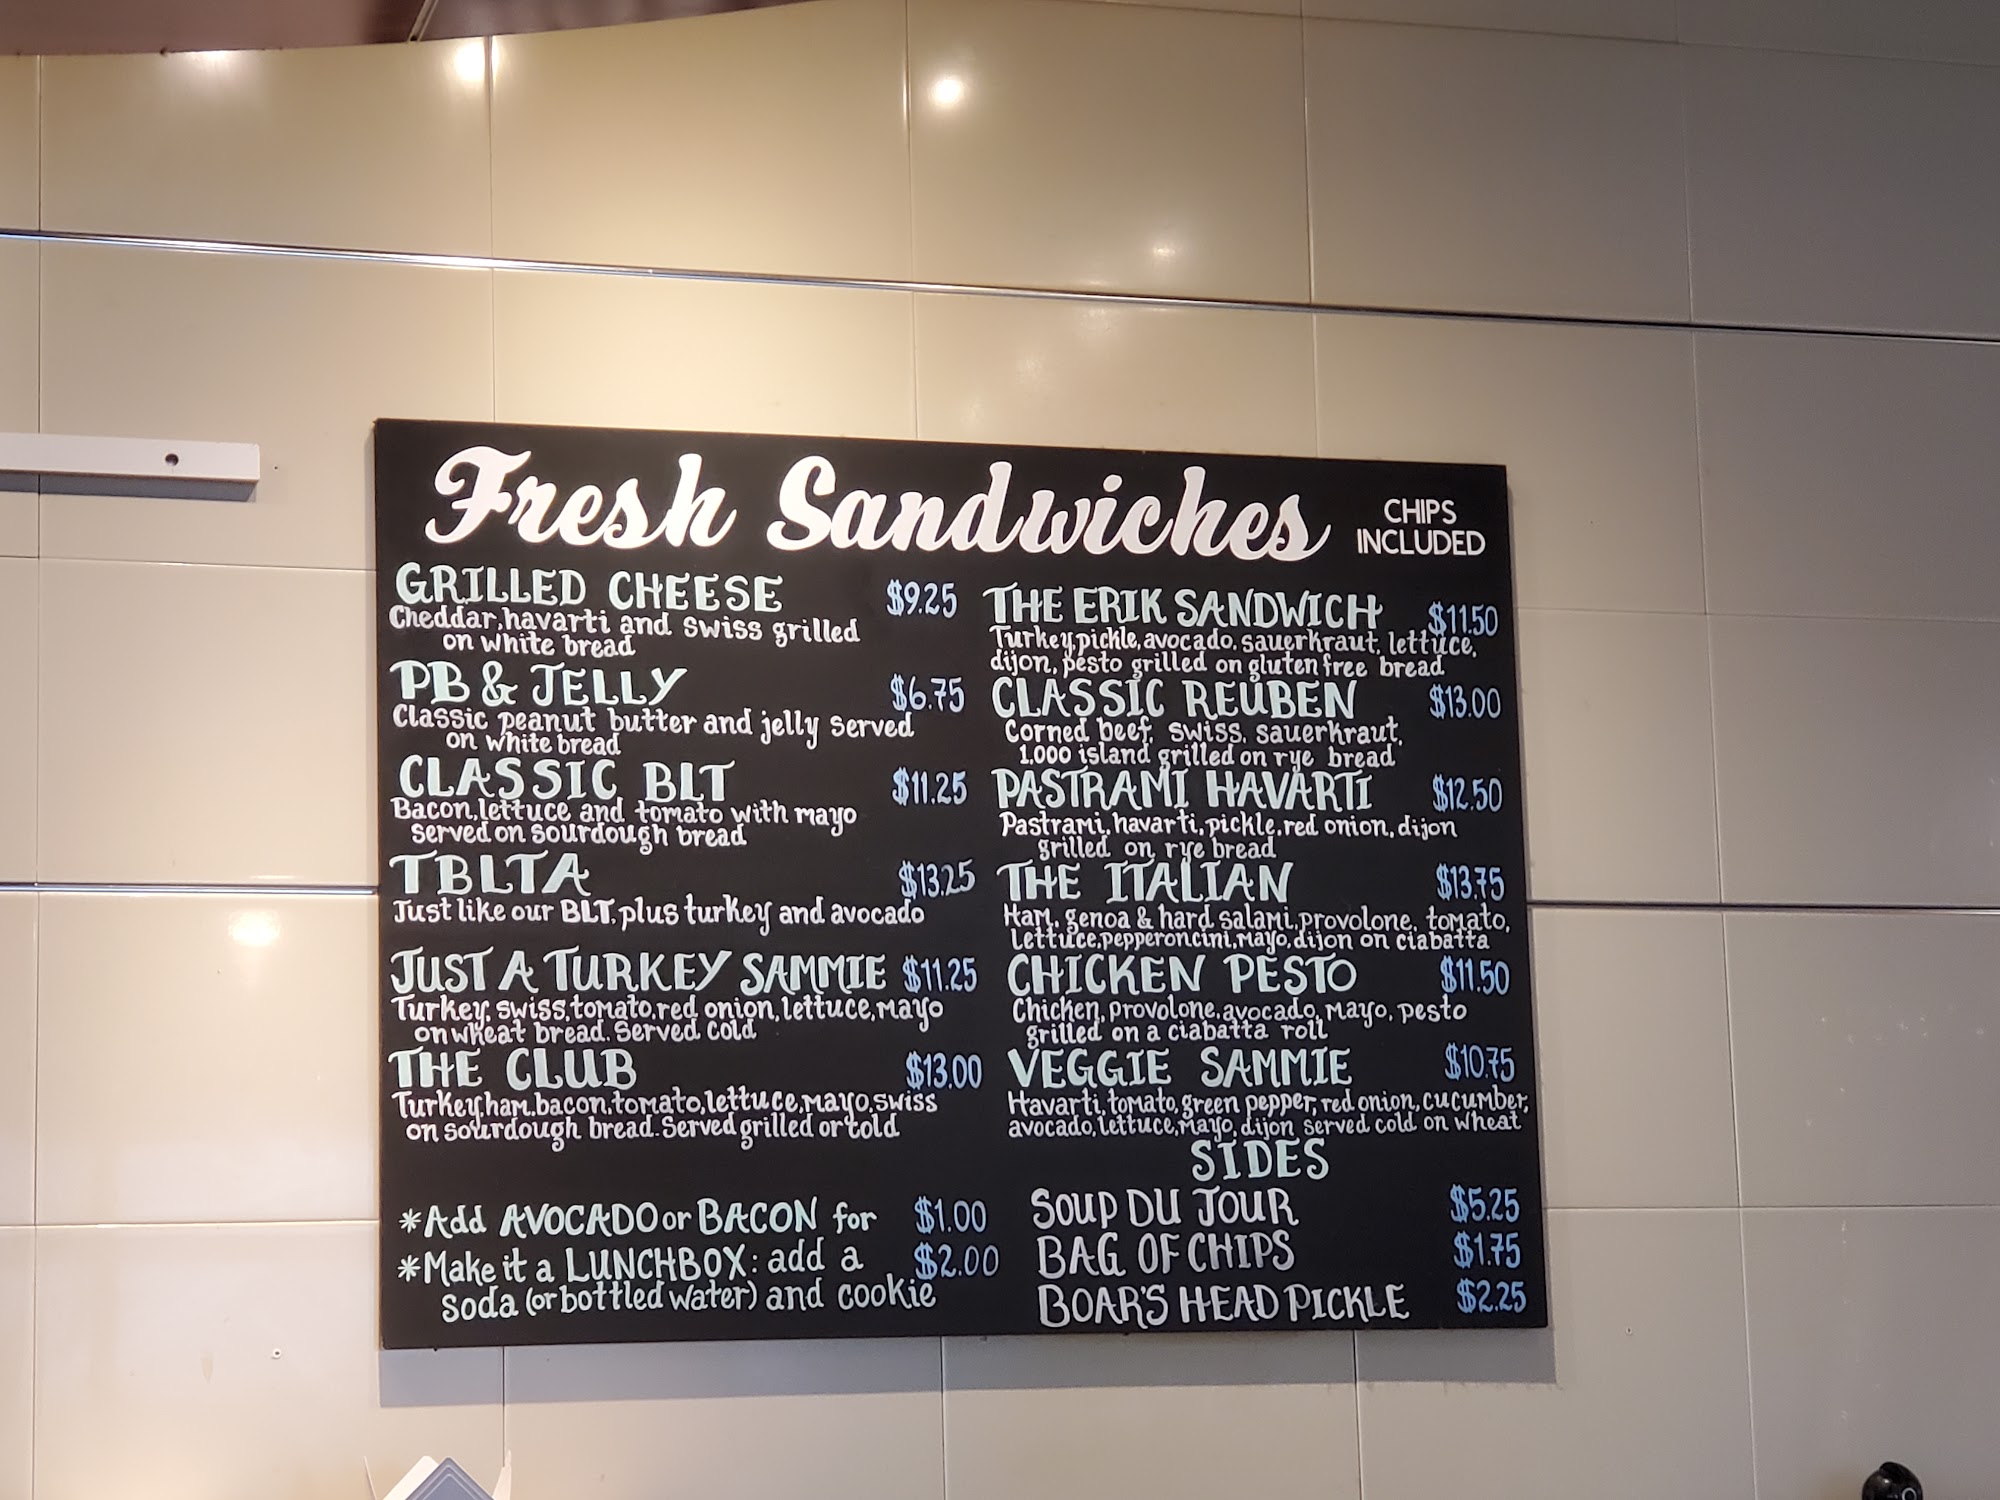 Fresh Sandwiches
CHIPS
INCLUDED
GRILLED CHEESE $9.25
Cheddar, havarti and swiss grilled
on white bread
PB & JELLY $6.75
Classic peanut butter and jelly served
on white bread
CLASSIC BLT $11.25
Bacon, lettuce and tomato with mayo
served on sourdough bread
TBLTA $13.25
Just like our BLT, plus turkey and avocado
JUST A TURKEY SAMMIE $11.25
Turkey, swiss, tomato, red onion, lettuce, mayo
on wheat bread. Served cold
THE CLUB $13.00
Turkey, ham, bacon, tomato, lettuce, mayo, swiss
on sourdough bread. Served grilled or cold
*Add AVOCADO or BACON for $1.00
*Make it a LUNCHBOX: add a $2.00
soda (or bottled water) and cookie
THE ERIK SANDWICH $11.50
Turkey, pickle, avocado, sauerkraut, lettuce,
dijon, pesto grilled on gluten free bread
CLASSIC REUBEN $13.00
Corned beef, swiss, sauerkraut,
1,000 island grilled on rye bread
PASTRAMI HAVARTI $12.50
Pastrami, havarti, pickle, red onion, dijon
grilled on rye bread
THE ITALIAN $13.75
Ham, genoa & hard salami, provolone, tomato,
lettuce, pepperoncini, mayo, dijon on ciabatta
CHICKEN PESTO $11.50
Chicken, provolone, avocado, mayo, pesto
grilled on a ciabatta roll
VEGGIE SAMMIE $10.75
Havarti, tomato, green pepper, red onion, cucumber,
avocado, lettuce, mayo, dijon served cold on wheat
SIDES
SOUP DU JOUR $5.25
BAG OF CHIPS $1.75
BOAR'S HEAD PICKLE $2.25